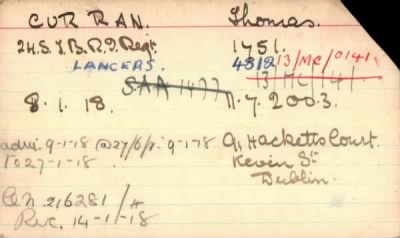 CURRAN. Thomas.
24. S. J. B. R. I Regt. 1751.
LANCERS. 4812/13/MC/0141
SAA 1477 13/MC/141
8. 1. 18. 11. 7. 2003.
admi. 9-1-18 @ 27/6/ 9-1-18 9, Hacketts Court.
to 27-1-18. Kevin St
Dublin.
C.N. 216281/H
Rec. 14-1-18